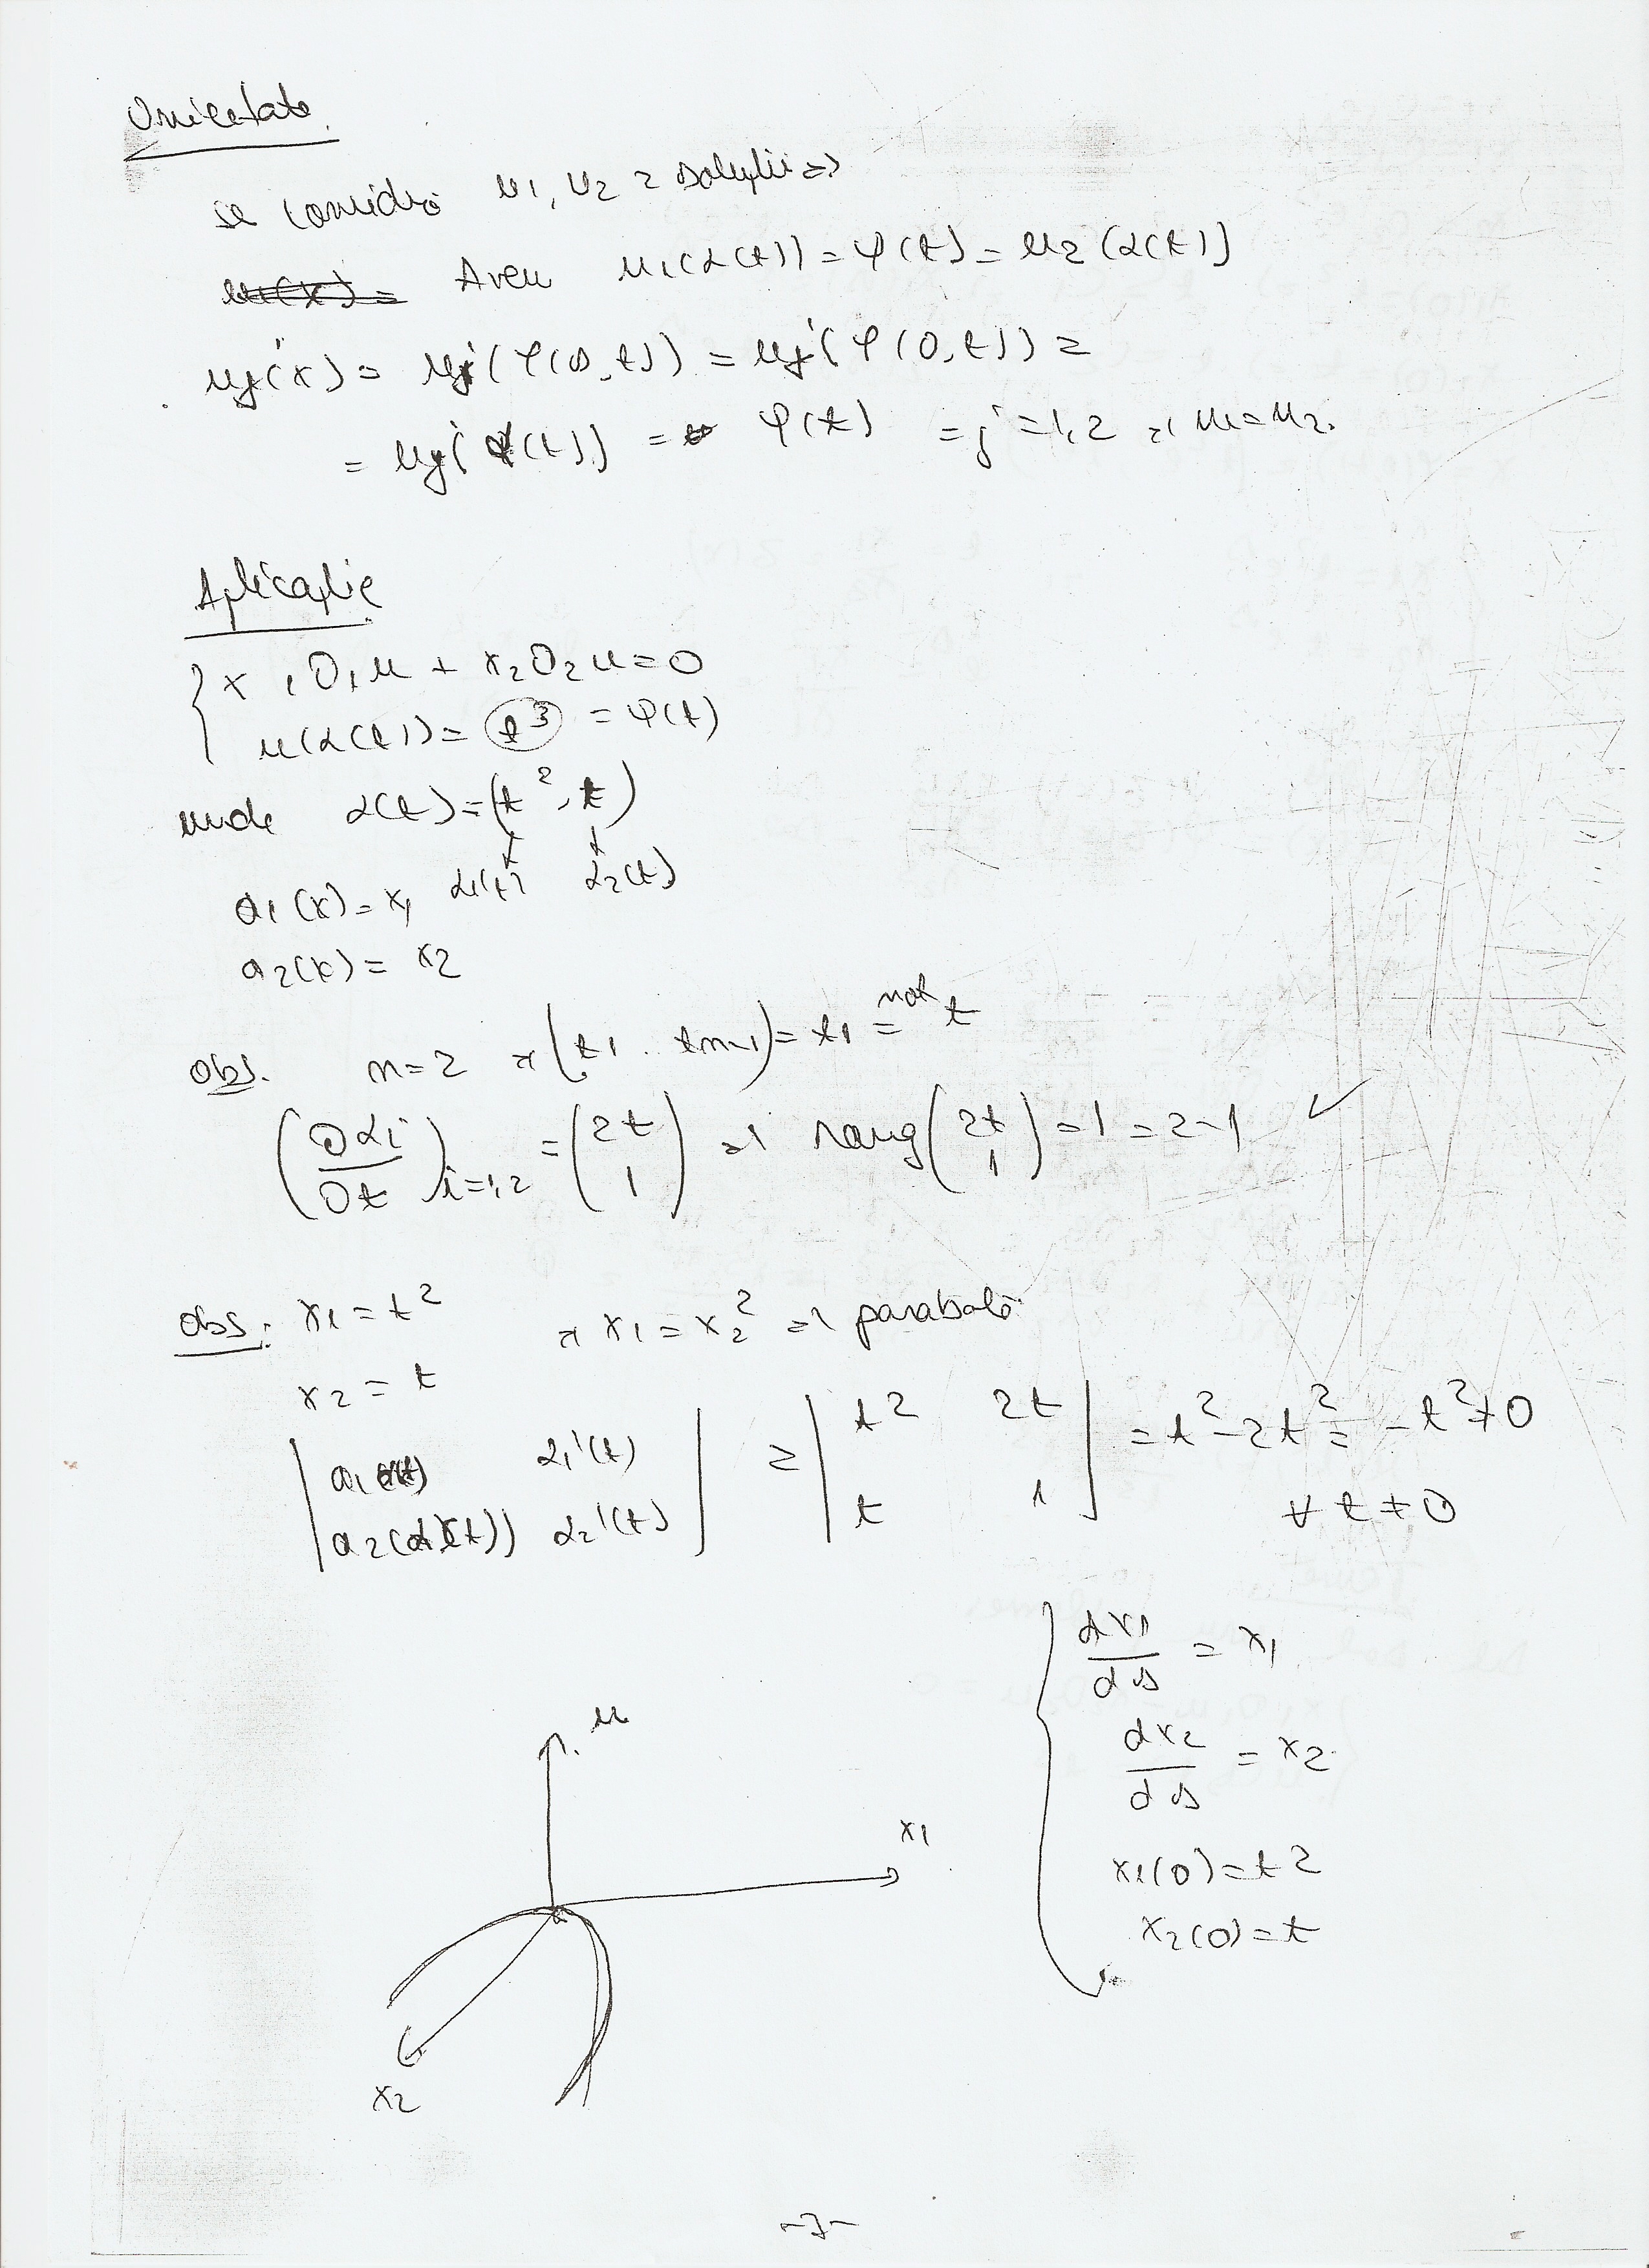 Unicitate.
se consideră u1, u2 2 soluţii =>
u1(x) = Avem u1(α(t)) = φ(t) = u2(α(t))
uj(x) = uj(φ(s,t)) = uj(φ(0,t)) =
= uj(α(t)) = φ(t) = j=1,2 => u1=u2.
Aplicaţie
{ x1D1u + x2D2u = 0
u(α(t)) = t³ = φ(t)
unde α(t) = (t², t)
α1(t) α2(t)
a1(x) = x1
a2(x) = x2
Obs. n=2 => (t1 .. tn-1) = t1 =not t
(∂αi/∂t)i=1,2 = (2t 1) => rang (2t 1) = 1 = 2-1 ✓
Obs: x1 = t²
=> x1 = x2² => parabolă
x2 = t
|a1(α(t)) α1'(t)| = |t² 2t| = t² - 2t² = -t² ≠ 0
|a2(α(t)) α2'(t)| |t 1| ∀ t ≠ 0
{ dx1/ds = x1
dx2/ds = x2
x1(0) = t²
x2(0) = t
u
x1
x2
-7-